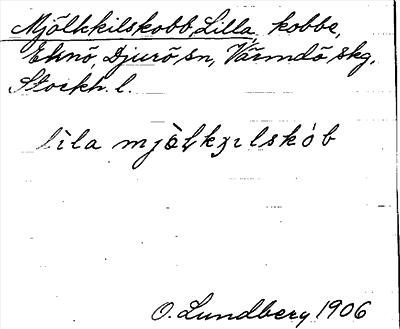 Mjölkkilskobb, Lilla, kobbe,
Eknö, Djurö sn, Värmdö skg,
Stockh. l.
lìla mjö̀lkȷılskób
O. Lundberg 1906